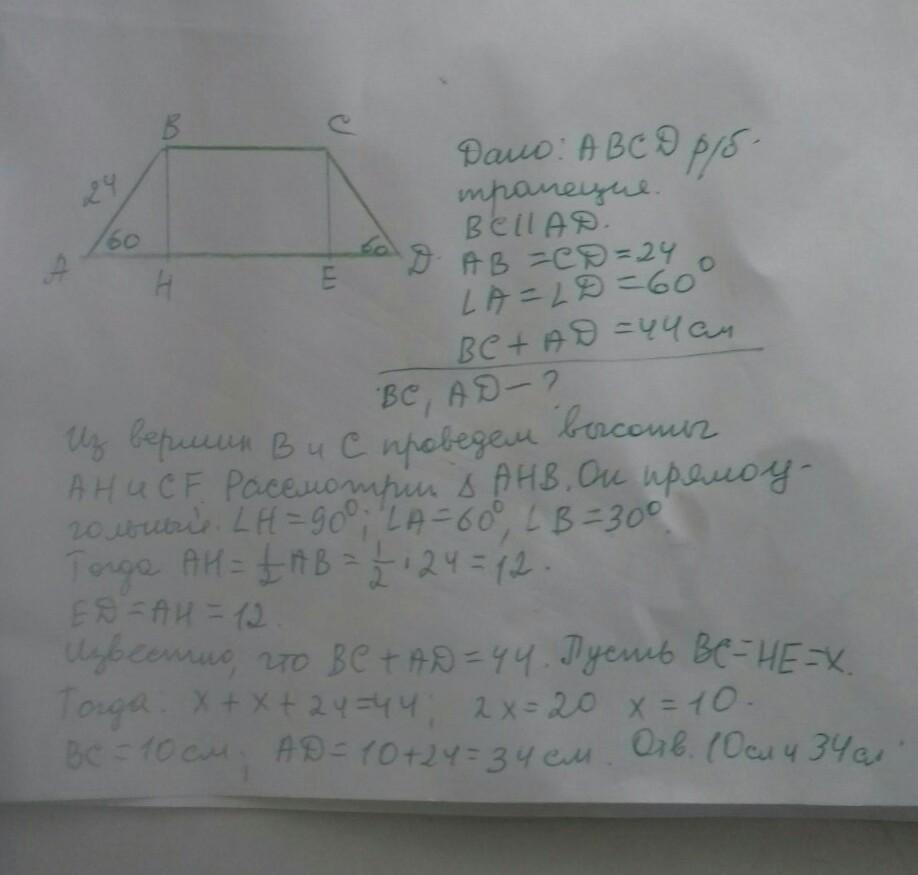 B C
24
60 60
A H E D
Дано: ABCD р/б.
трапеция.
BC||AD.
AB = CD = 24
∠A = ∠D = 60°
BC + AD = 44 см
BC, AD – ?
Из вершин B и C проведем высоты
AH и CF. Рассмотрим Δ AHB. Он прямоу-
гольный. ∠H = 90°; ∠A = 60°, ∠B = 30°.
Тогда AH = 1/2 AB = 1/2 · 24 = 12.
ED = AH = 12.
Известно, что BC + AD = 44. Пусть BC = HE = x.
Тогда: x + x + 24 = 44; 2x = 20 x = 10.
BC = 10 см; AD = 10 + 24 = 34 см. Отв. 10 см и 34 см